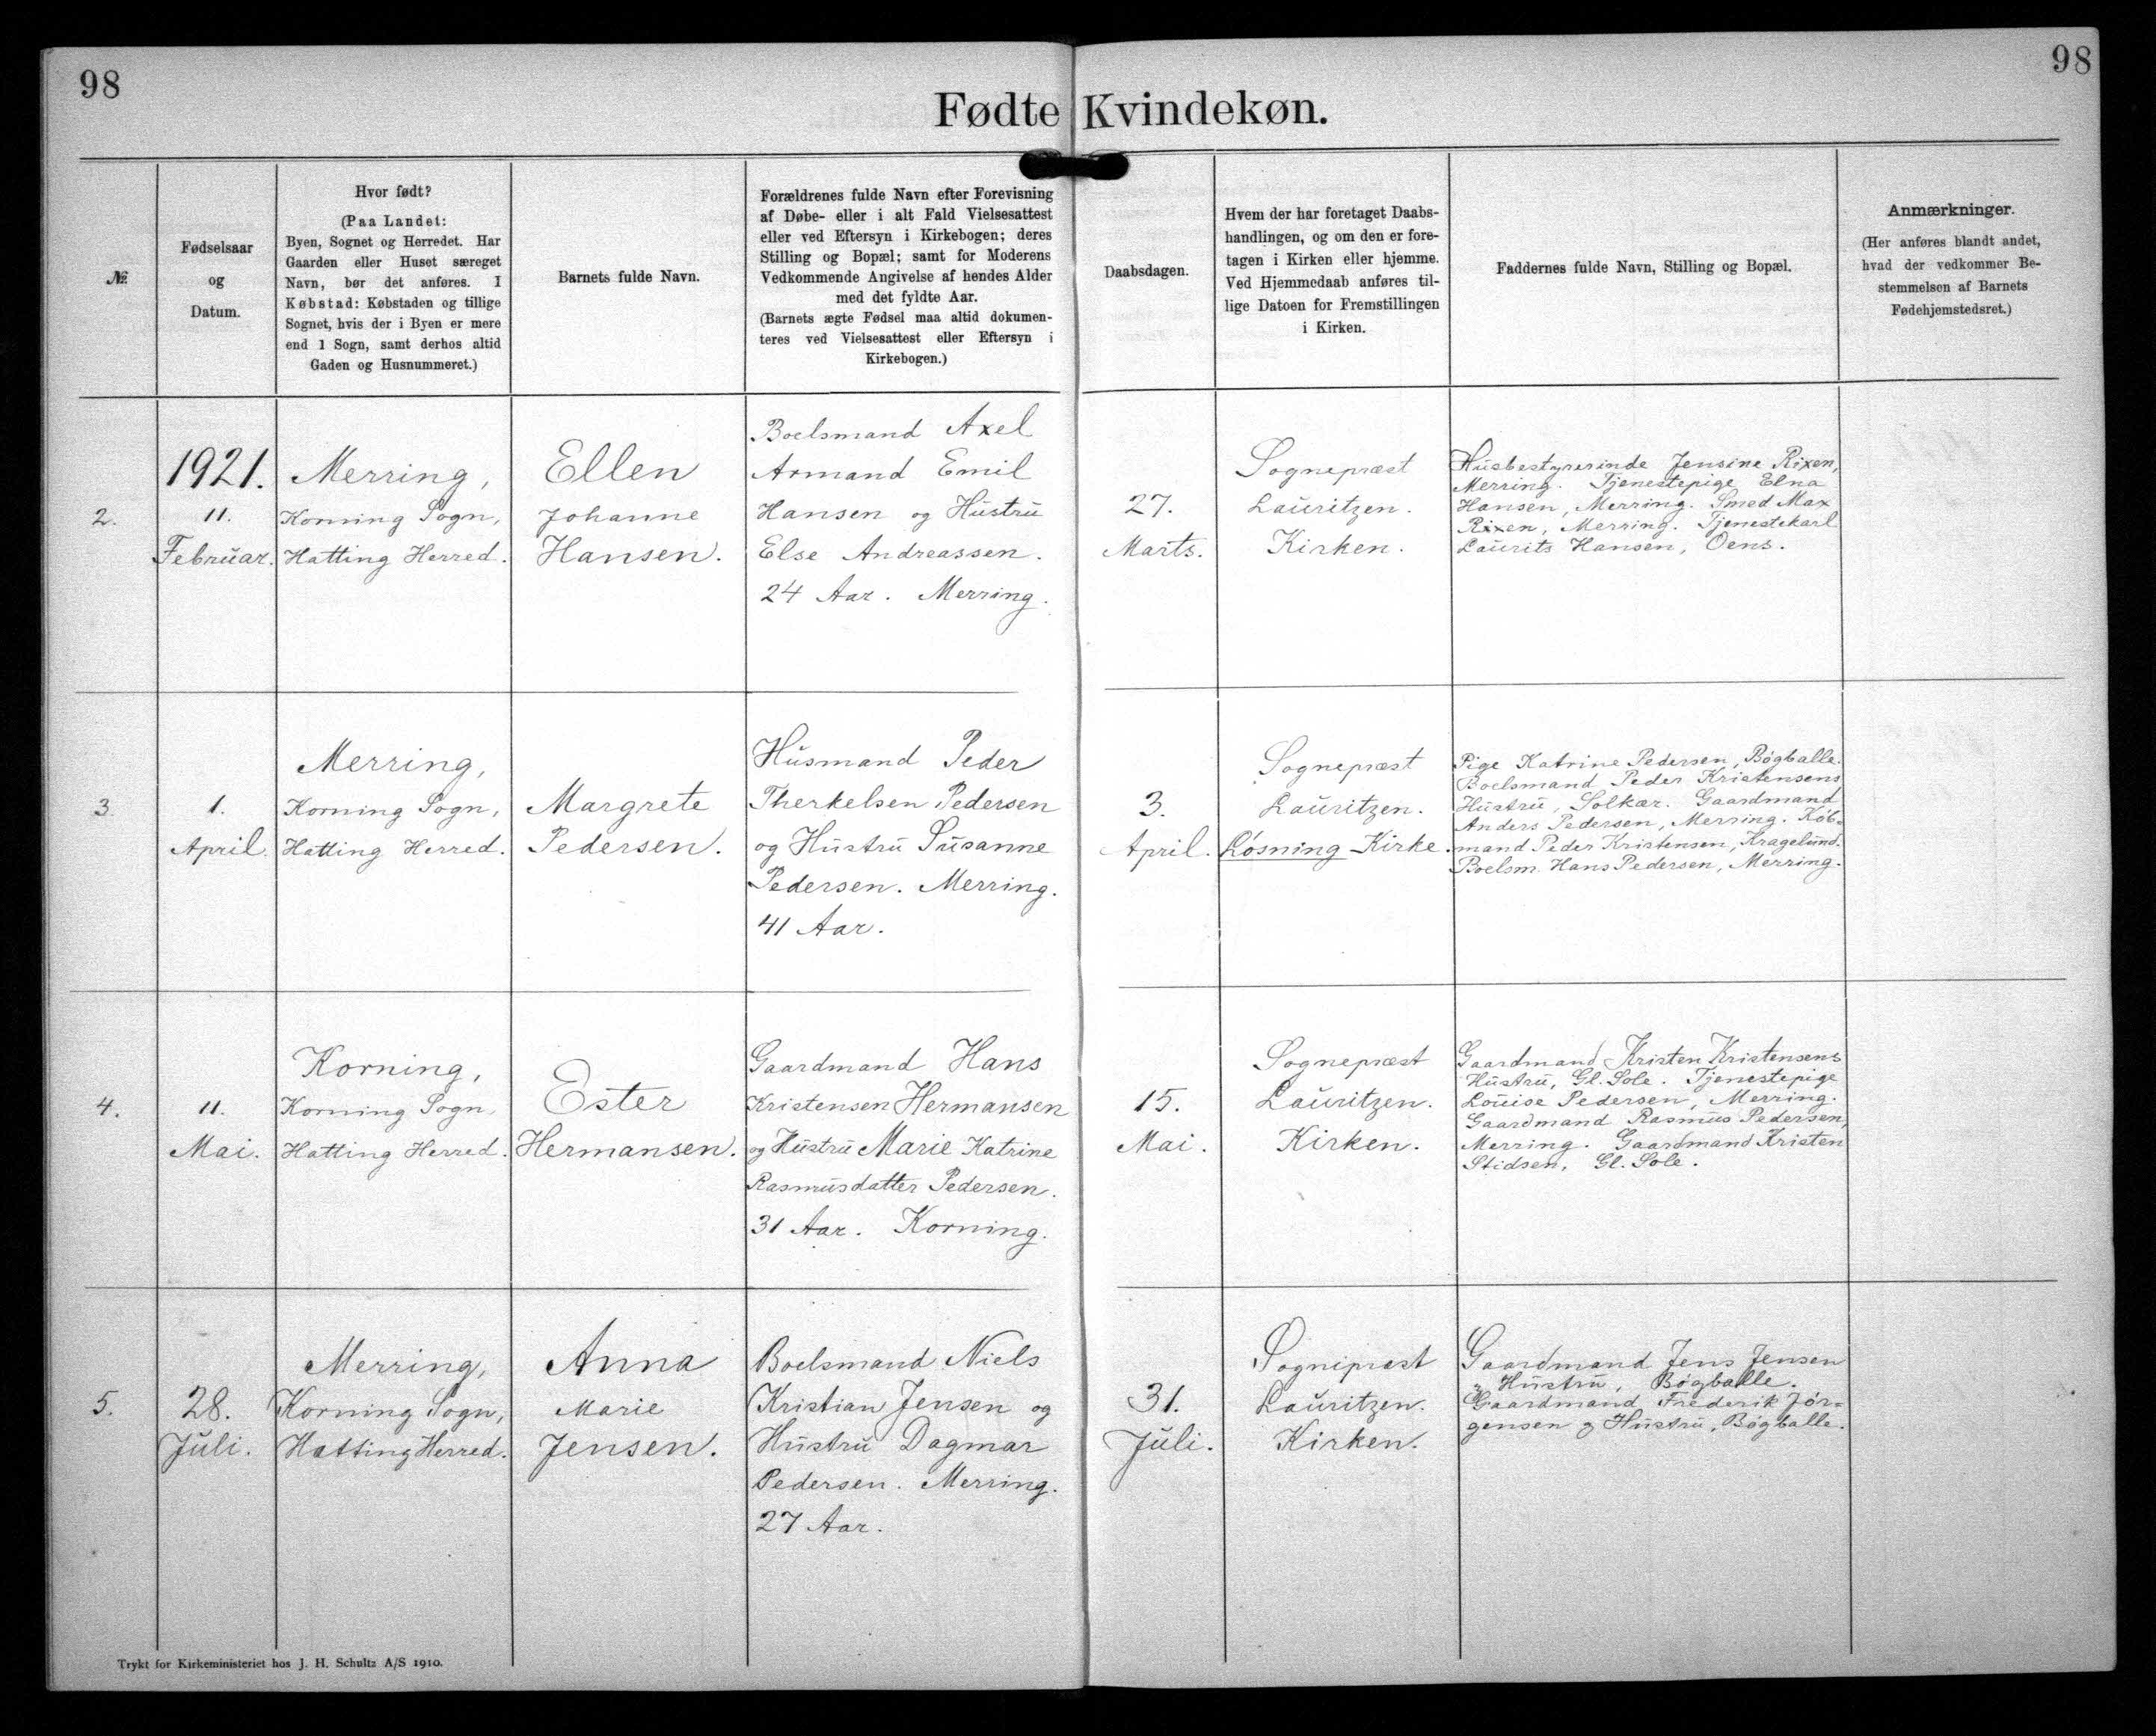 98
98
Fødte Kvindekøn.
№
Fødselsaar
og
Datum.
Hvor født?
(Paa Landet:
Byen, Sognet og Herredet. Har
Gaarden eller Huset særeget
Navn, bør det anføres. I
Købstad: Købstaden og tillige
Sognet, hvis der i Byen er mere
end 1 Sogn, samt derhos altid
Gaden og Husnummeret.)
Barnets fulde Navn.
Forældrenes fulde Navn efter Forevisning
af Døbe- eller i alt Fald Vielsesattest
eller ved Eftersyn i Kirkebogen; deres
Stilling og Bopæl; samt for Moderens
Vedkommende Angivelse af hendes Alder
med det fyldte Aar.
(Barnets ægte Fødsel maa altid dokumen-
teres ved Vielsesattest eller Eftersyn i
Kirkebogen.)
Daabsdagen.
Hvem der har foretaget Daabs-
handlingen, og om den er fore-
tagen i Kirken eller hjemme.
Ved Hjemmedaab anføres til-
lige Datoen for Fremstillingen
i Kirken.
Faddernes fulde Navn, Stilling og Bopæl.
Anmærkninger.
(Her anføres blandt andet,
hvad der vedkommer Be-
stemmelsen af Barnets
Fødehjemstedsret.)
2.
1921.
11.
Februar.
Merring,
Korning Sogn,
Hatting Herred.
Ellen
Johanne
Hansen.
Boelsmand Axel
Armand Emil
Hansen og Hustru
Else Andreassen.
24 Aar. Merring.
27.
Marts.
Sognepræst
Lauritzen.
Kirken.
Husbestyrerinde Jensine Rixen,
Merring. Tjenestepige Elna
Hansen, Merring. Smed Max
Rixen, Merring. Tjenestekarl
Laurits Hansen, Oens.
3.
1.
April.
Merring,
Korning Sogn,
Hatting Herred.
Margrete
Pedersen.
Husmand Peder
Therkelsen Pedersen
og Hustru Susanne
Pedersen. Merring.
41 Aar.
3.
April.
Sognepræst
Lauritzen.
Løsning Kirke.
Pige Katrine Pedersen, Bøgballe.
Boelsmand Peder Kristensens
Hustru, Solkær. Gaardmand
Anders Pedersen, Merring. Køb-
mand Peder Kristensen, Kragelund.
Boelsm. Hans Pedersen, Merring.
4.
11.
Mai.
Korning,
Korning Sogn,
Hatting Herred.
Ester
Hermansen.
Gaardmand Hans
Kristensen Hermansen
og Hustru Marie Katrine
Rasmusdatter Pedersen.
31 Aar. Korning.
15.
Mai.
Sognepræst
Lauritzen.
Kirken.
Gaardmand Kristen Kristensens
Hustru, Gl. Sole. Tjenestepige
Louise Pedersen, Merring.
Gaardmand Rasmus Pedersen,
Merring. Gaardmand Kristen
Stidsen, Gl. Sole.
5.
28.
Juli.
Merring,
Korning Sogn,
Hatting Herred.
Anna
Marie
Jensen.
Boelsmand Niels
Kristian Jensen og
Hustru Dagmar
Pedersen. Merring.
27 Aar.
31.
Juli.
Sognepræst
Lauritzen.
Kirken.
Gaardmand Jens Jensen
& Hustru, Bøgballe.
Gaardmand Frederik Jør-
gensen & Hustru, Bøgballe.
Trykt for Kirkeministeriet hos J. H. Schultz A/S 1910.